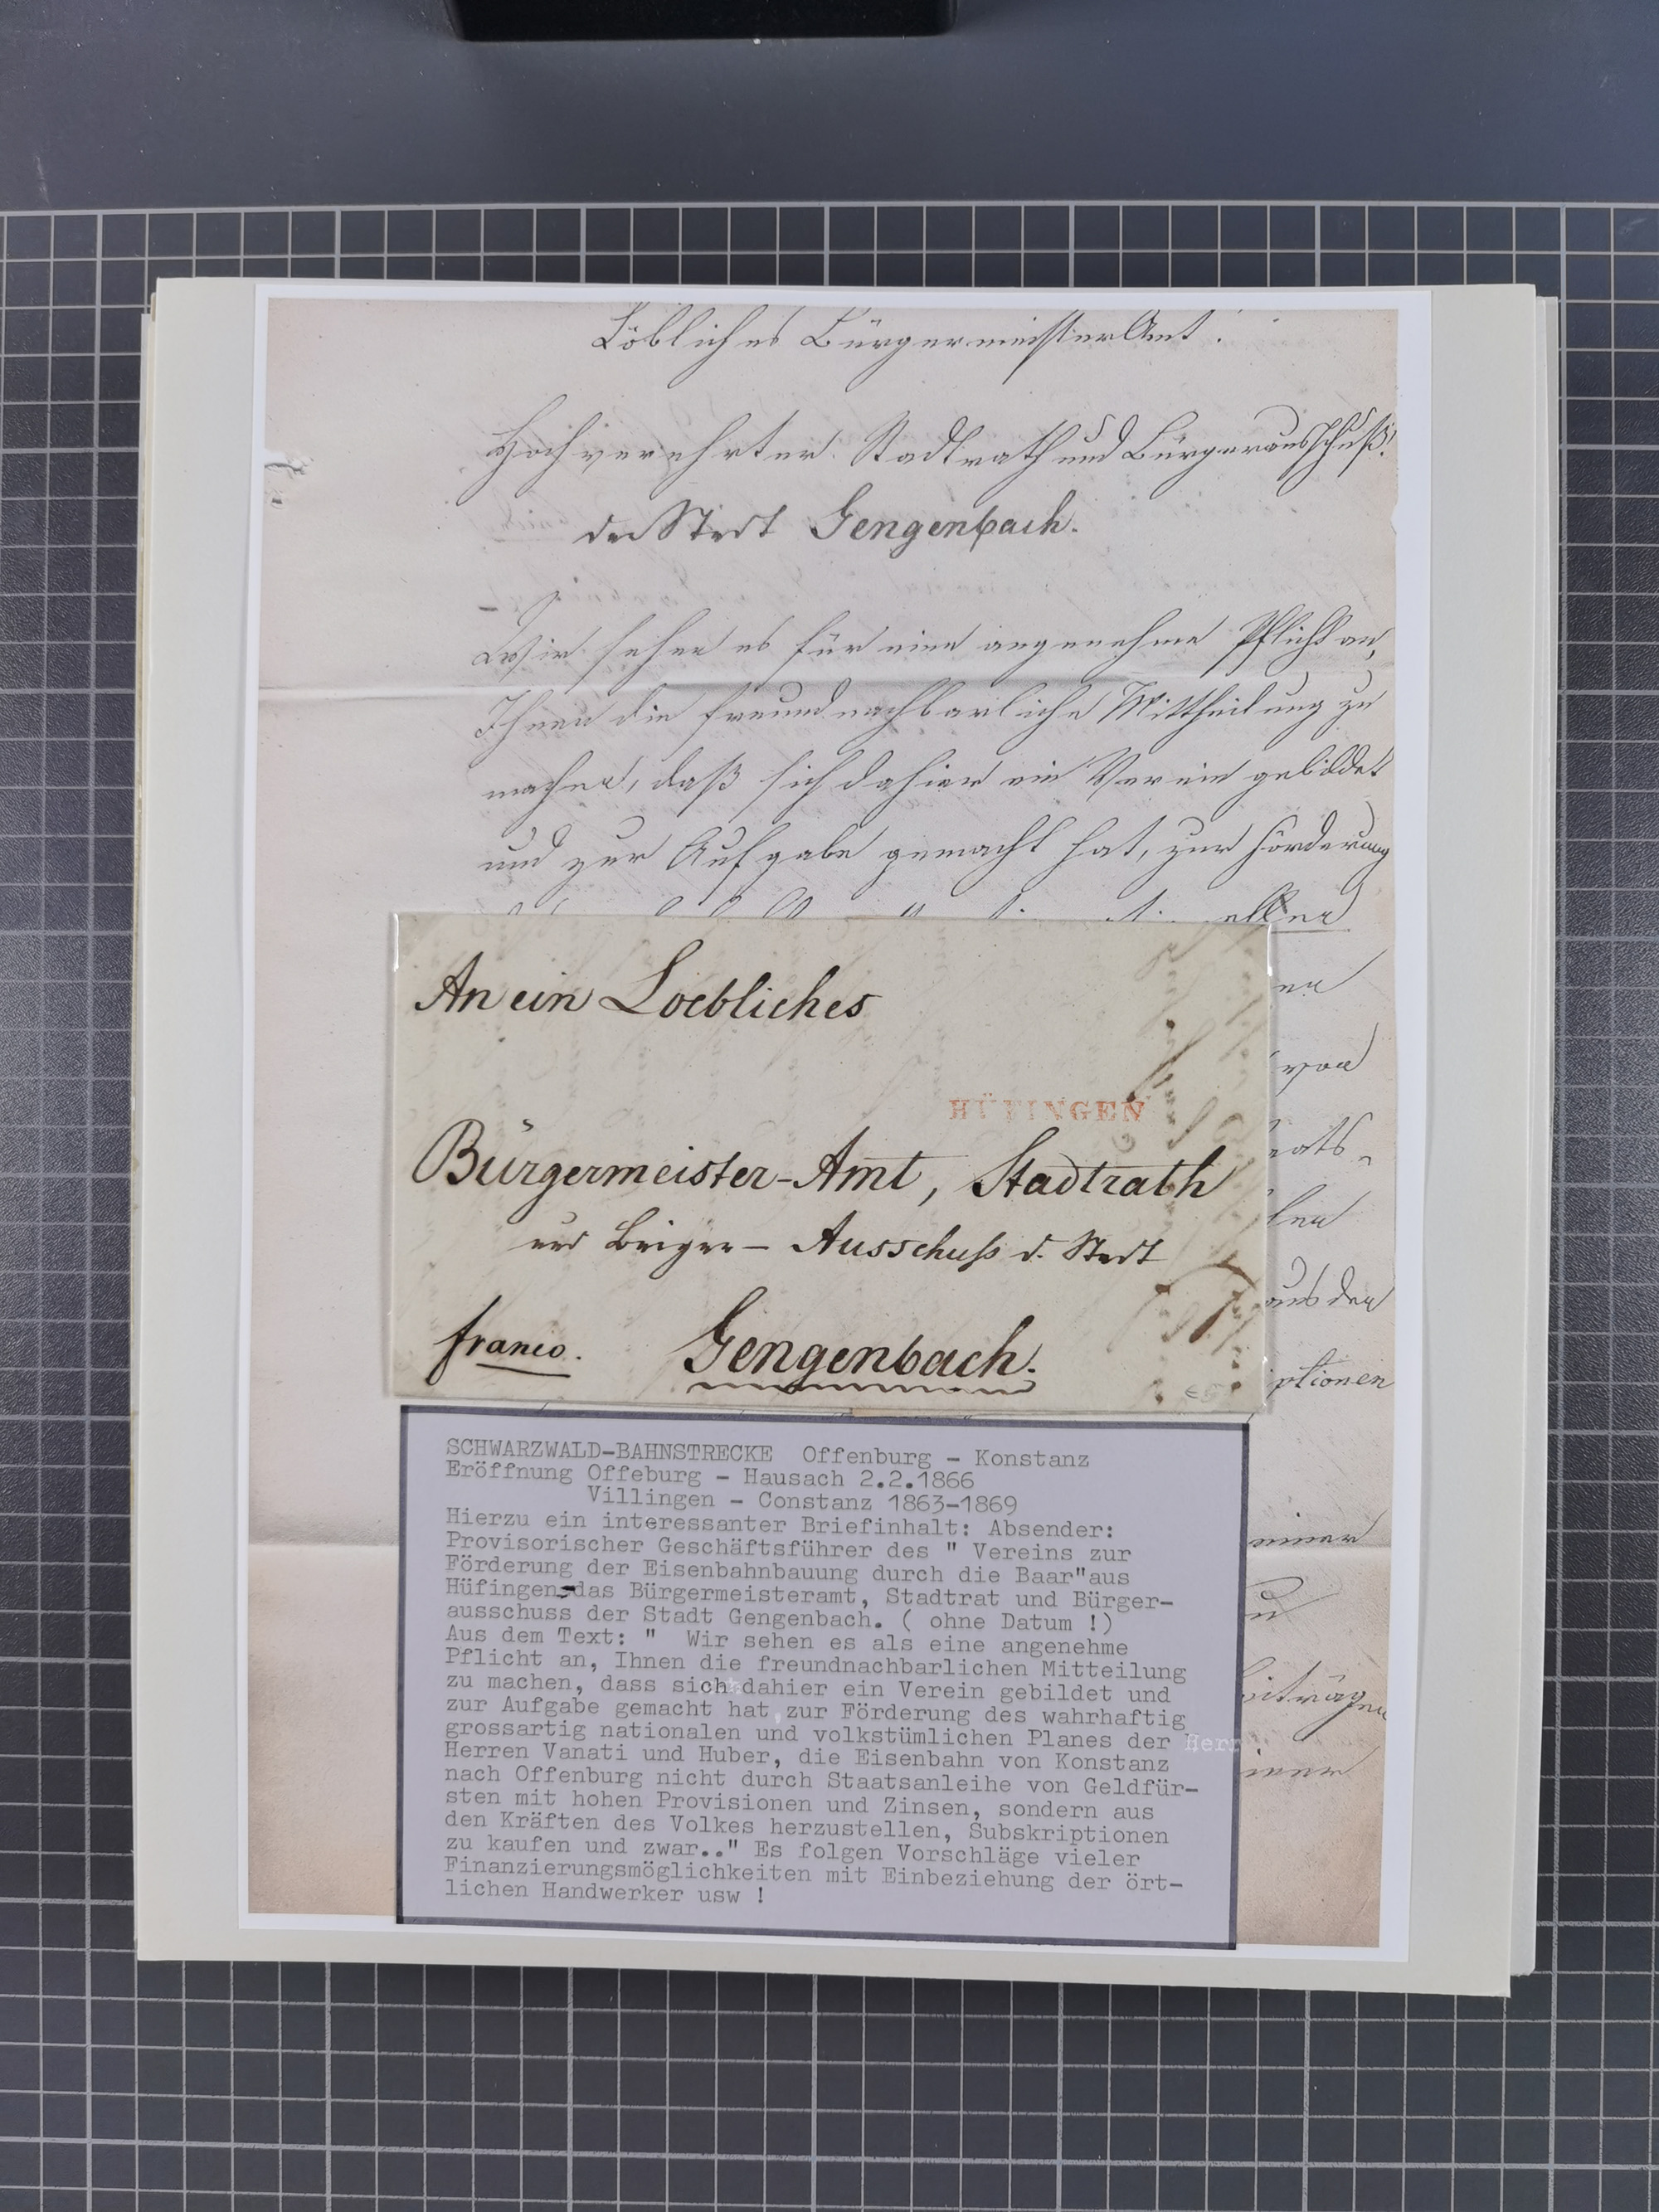 Löbliches BürgermeisterAmt!
Hochverehrter Stadtrath und Bürgerausschuß!
der Stadt Gengenbach.
Wir sehen es für eine angenehme Pflicht an,
Ihnen die freundnachbarliche Mittheilung zu
machen, daß sich dahier ein Verein gebildet
und zur Aufgabe gemacht hat, zur Förderung
von
aus den
ptionen
einer
An ein Loebliches
HÜFINGEN
Bürgermeister-Amt, Stadtrath
und Bürger- Ausschuß d. Stadt
franco. Gengenbach.
SCHWARZWALD-BAHNSTRECKE Offenburg - Konstanz
Eröffnung Offeburg - Hausach 2.2.1866
Villingen - Constanz 1863-1869
Hierzu ein interessanter Briefinhalt: Absender:
Provisorischer Geschäftsführer des " Vereins zur
Förderung der Eisenbahnbauung durch die Baar"aus
Hüfingen-das Bürgermeisteramt, Stadtrat und Bürger-
ausschuss der Stadt Gengenbach. ( ohne Datum !)
Aus dem Text: " Wir sehen es als eine angenehme
Pflicht an, Ihnen die freundnachbarlichen Mitteilung
zu machen, dass sich dahier ein Verein gebildet und
zur Aufgabe gemacht hat,zur Förderung des wahrhaftig
grossartig nationalen und volkstümlichen Planes der Herr
Herren Vanati und Huber, die Eisenbahn von Konstanz
nach Offenburg nicht durch Staatsanleihe von Geldfür-
sten mit hohen Provisionen und Zinsen, sondern aus
den Kräften des Volkes herzustellen, Subskriptionen
zu kaufen und zwar.." Es folgen Vorschläge vieler
Finanzierungsmöglichkeiten mit Einbeziehung der ört-
lichen Handwerker usw !